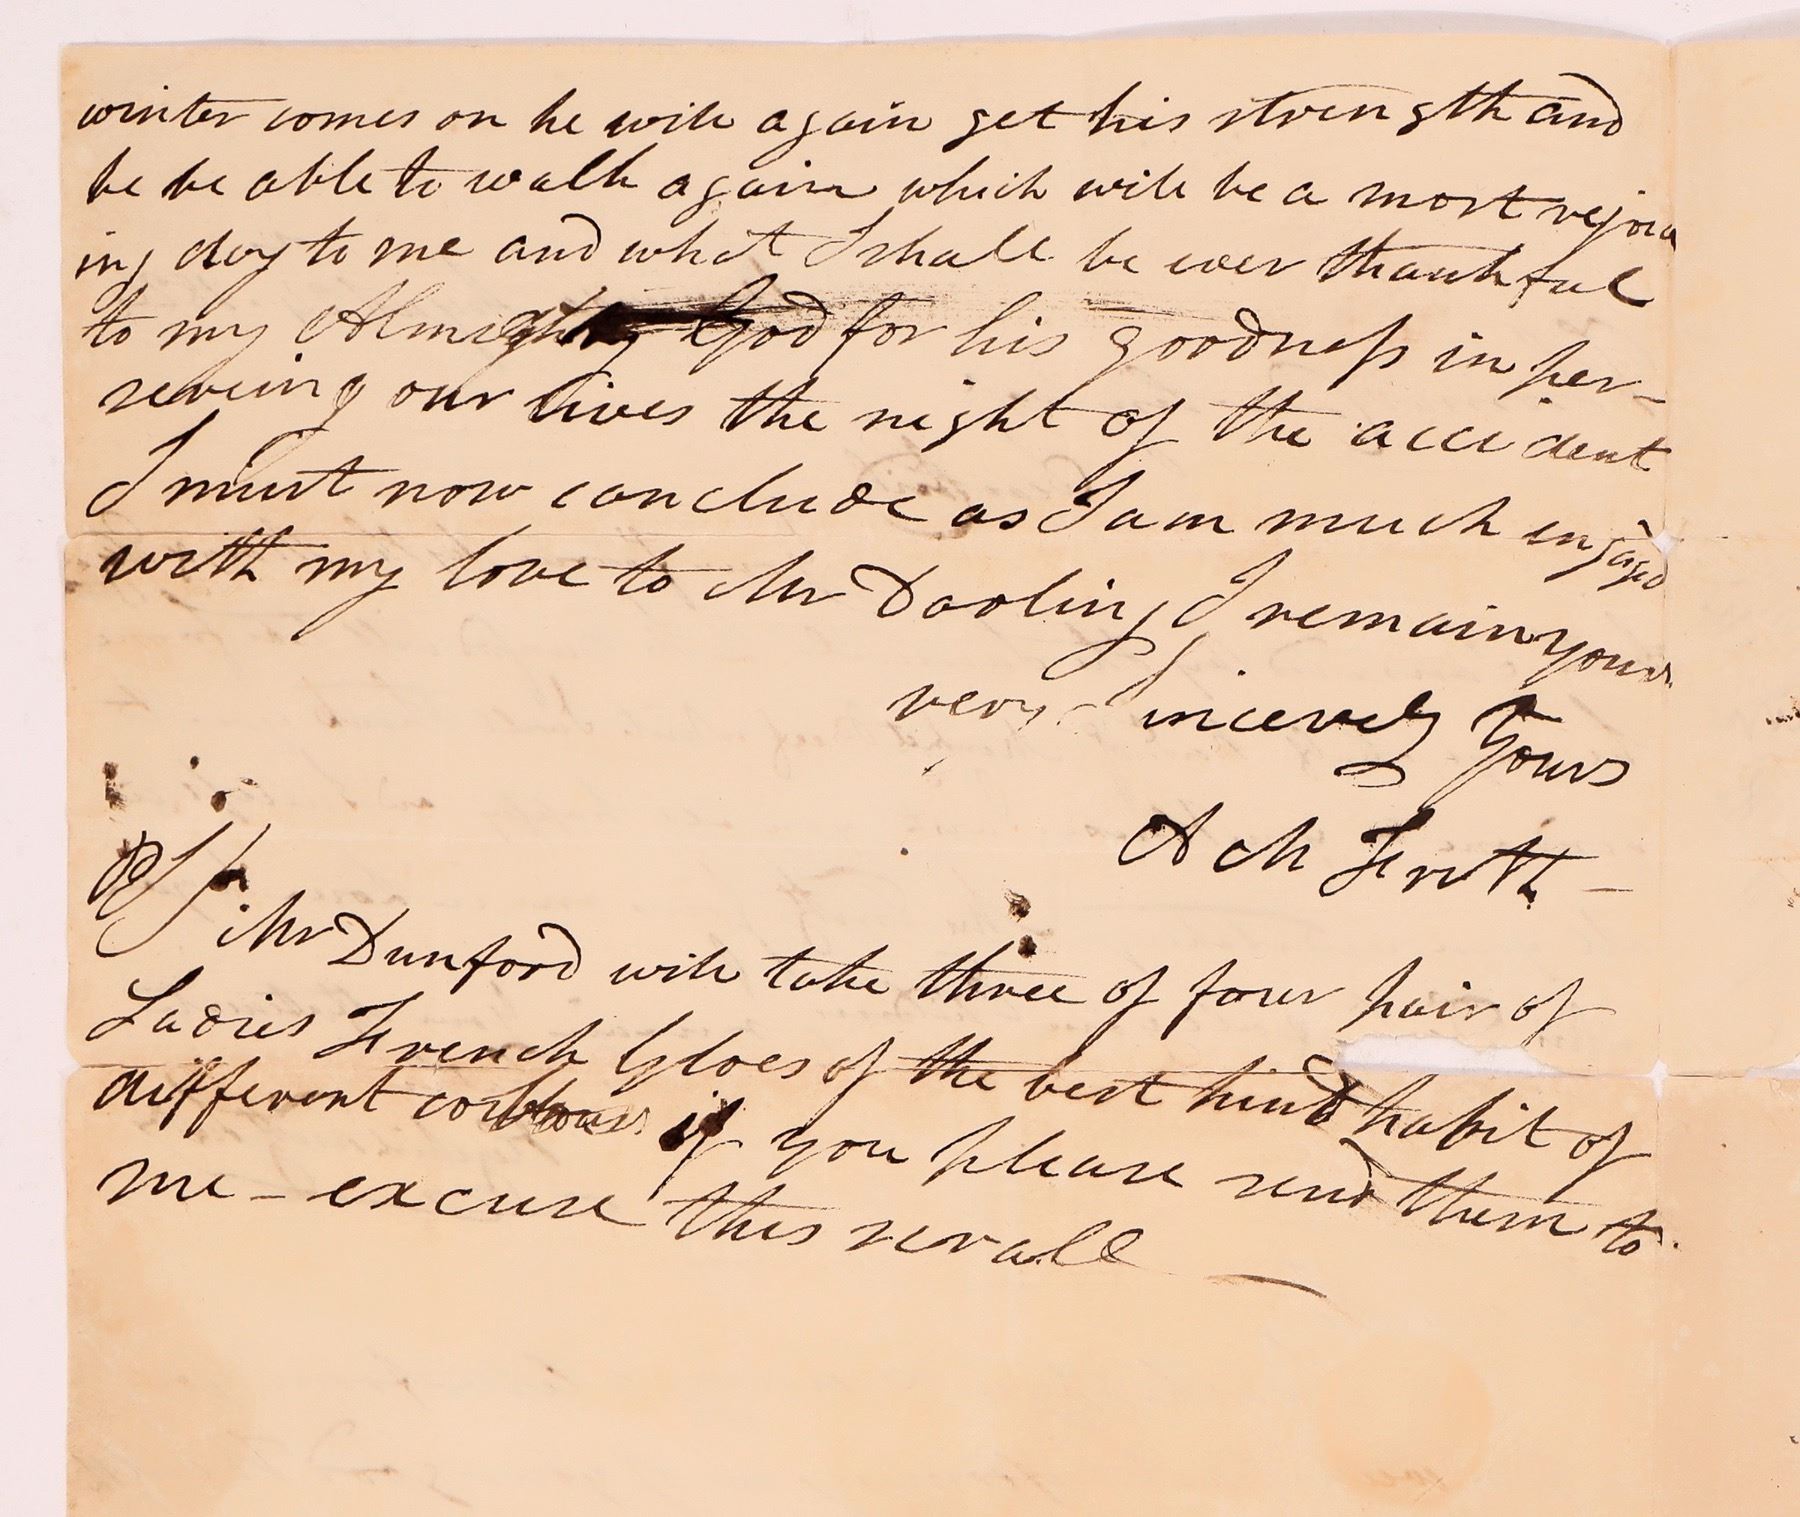 winter comes on he will again get his strength and
be be able to walk again which will be a most rejoic
ing day to me and what I shall be ever thankful
to my Almighty God for his goodness in per-
serveing our lives the night of the accident
I must now conclude as I am much engaged
with my love to Mr Darling I remain yours
very Sincerely Yours
A M Frith -
PS
Mr Dunford will take three of four pair of
Ladies French Gloes of the best kind habit of
different colours if you please send them to
me - excuse this